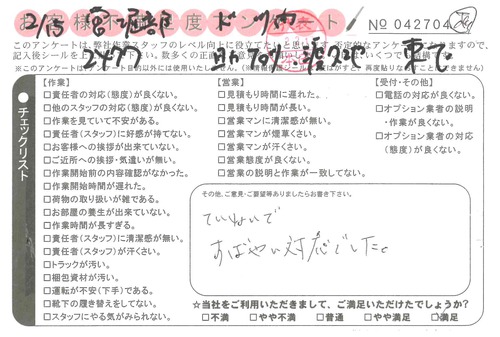 お客様不満足度アンケート
No 042704
2/15
このアンケートは、弊社作業スタッフのレベル向上に役立てたいと思い
2477
東て
チェックリスト
【作業】
□責任者の対応(態度)が良くない。
□他のスタッフの対応(態度)が良くない。
□作業を見ていて不安がある。
□責任者(スタッフ)に好感が持てない。
□お客様への挨拶が出来ていない。
□ご近所への挨拶・気遣いが無い。
□作業開始前の内容確認がなかった。
□作業開始時間が遅れた。
□荷物の取り扱いが雑である。
□お部屋の養生が出来ていない。
□作業時間が長すぎる。
□責任者(スタッフ)に清潔感が無い。
□責任者(スタッフ)が汗くさい。
□トラックが汚い。
□梱包資材が汚い。
□運転が不安(下手)である。
□靴下の履き替えをしてない。
□スタッフにやる気がみられない。
【営業】
□見積もり時間に遅れた。
□見積もり時間が長い。
□営業マンに清潔感が無い。
□営業マンが煙草くさい。
□営業マンが汗くさい。
□営業態度が良くない。
□営業の説明と作業が一致してない。
【受付・その他】
□電話の対応が良くない。
□オプション業者の説明
・作業が良くない。
□オプション業者の対応
(態度)が良くない。
その他、ご意見・ご要望等ありましたらお書き下さい。
ていねいで
すばやい対応でした。
☆当社をご利用いただきまして、ご満足いただけたでしょうか?
□不満 □やや不満 □普通 □やや満足 □満足